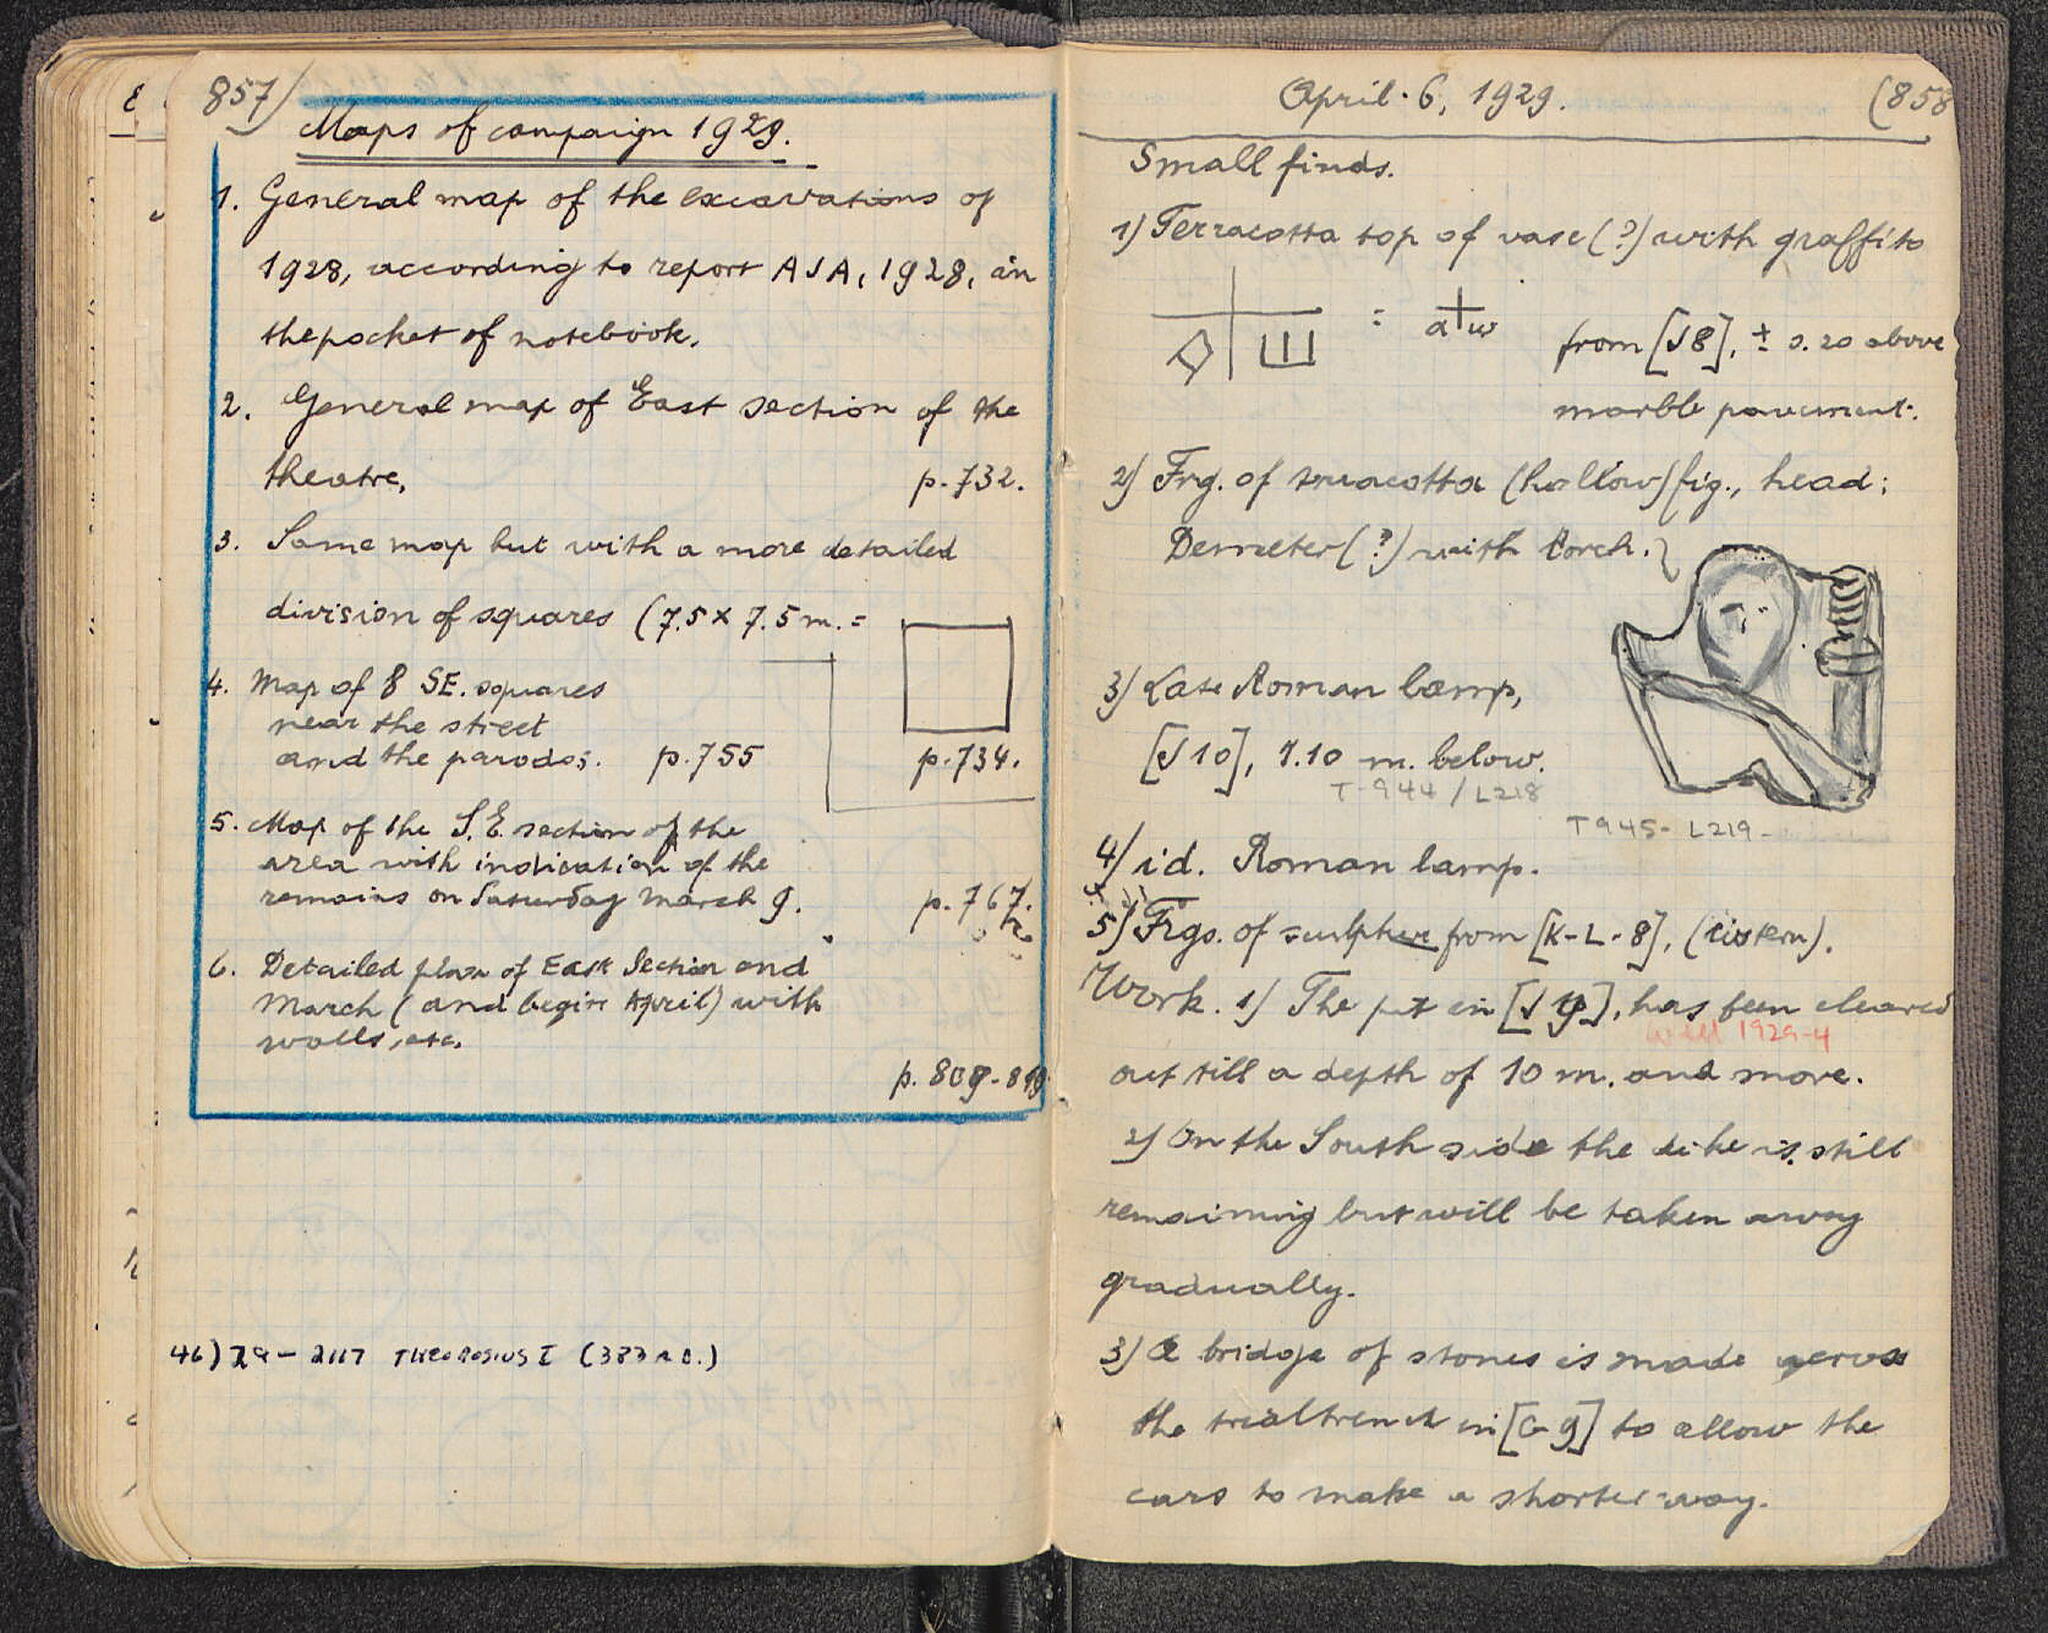 857)
Maps of campaign 1929.
1. General map of the excavations of
1928, according to report AJA, 1928, in
the pocket of notebook.
2. General map of East section of the
theatre, p. 732.
3. Same map but with a more detailed
division of squares (7.5 x 7.5 m. =
p. 734.
4. Map of 8 SE. squares
near the street
and the parodos. p. 755
5. Map of the S.E. section of the
area with indication of the
remains on Saturday March 9. p. 767.
6. Detailed plan of East Section end
March (and begin April) with
walls, etc.
p. 809-819
46) 29 - 2117 THEODOSIUS I (383 A.D.)
April. 6, 1929. (858
Small finds.
1) Terracotta top of vase (?) with graffito
= α+ω from [J8], ± 0.20 above
marble pavement.
2) Frg. of terracotta (hollow) fig., head;
Demeter (?) with torch.
3) Late Roman lamp,
[J10], 1.10 m. below.
T-944 / L218
T945- L219-
4) id. Roman lamp.
5) Frgs. of sculpture from [K-L-8], (cistern).
Work. 1) The pit in [J 9], has been cleared
well 1929-4
out till a depth of 10 m. and more.
2) On the South side the dike is still
remaining but will be taken away
gradually.
3) A bridge of stones is made across
the trialtrench in [G 9] to allow the
cars to make a shorter way.